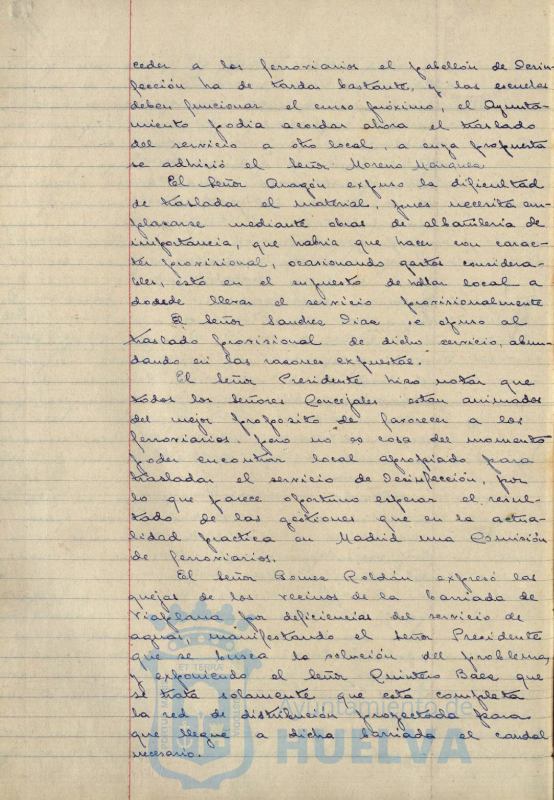 ceder a los ferroviarios el pabellón de Desin-
fección ha de tardar bastante, y las escuelas
deben funcionar el curso próximo, el Ayunta-
miento podía acordar ahora el traslado
del servicio a otro local, a cuya propuesta
se adhirió el Señor Moreno Márquez.
El Señor Aragón expuso la dificultad
de trasladar el material, pues necesita em-
plazarse mediante obras de albañilería de
importancia, que habría que hacer con carac-
ter provisional, ocasionando gastos considera-
bles, esto en el supuesto de hallar local a
dodede llevar el servicio provisionalmente
El Señor Sanchez Diaz se opuso al
traslado provisional de dicho servicio, abun-
dando en las razones expuestas.
El Señor Presidente hizo notar que
todos los Señores Concejales estan animados
del mejor proposito de favorecer a los
ferroviarios, pero no es cosa del momento
poder encontrar local apropiado para
trasladar el servicio de Desinfección, por
lo que parece oportuno esperar el resul-
tado de las gestiones que en la actua-
lidad practica en Madrid una Comisión
de ferroviarios.
El Señor Gomez Roldán expresó las
quejas de los vecinos de la barriada de
Viaplana por deficiencias del servicio de
aguas, manifestando el Señor Presidente
que se busca la solución del problema,
y exponiendo el Señor Quintero Báez que
se trata solamente que esta completa
la red de distribución proyectada para
que llegue a dicha barriada el caudal
necesario.
ET TERRÆ
Ayuntamiento de
HUELVA